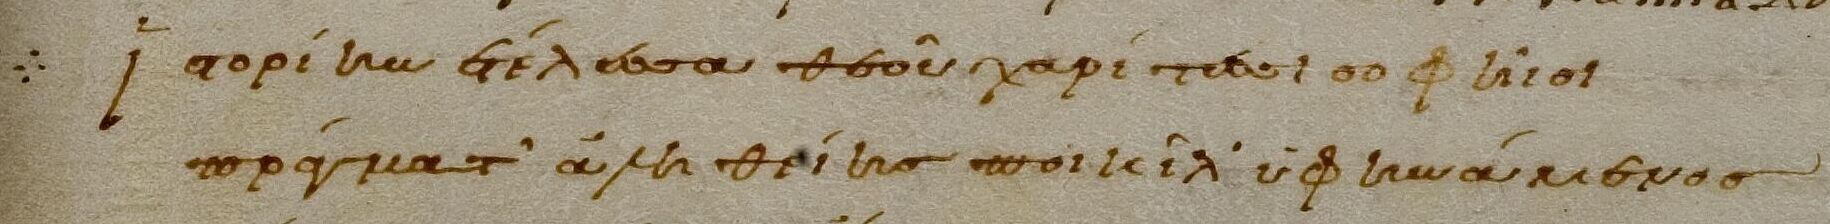 Ἱστορίην ἐτέλεσσα θεοῦ χαρίτεσσι σοφῆισι
πράγματ' ἀληθείης ποικίλ' ὑφηνάμενος